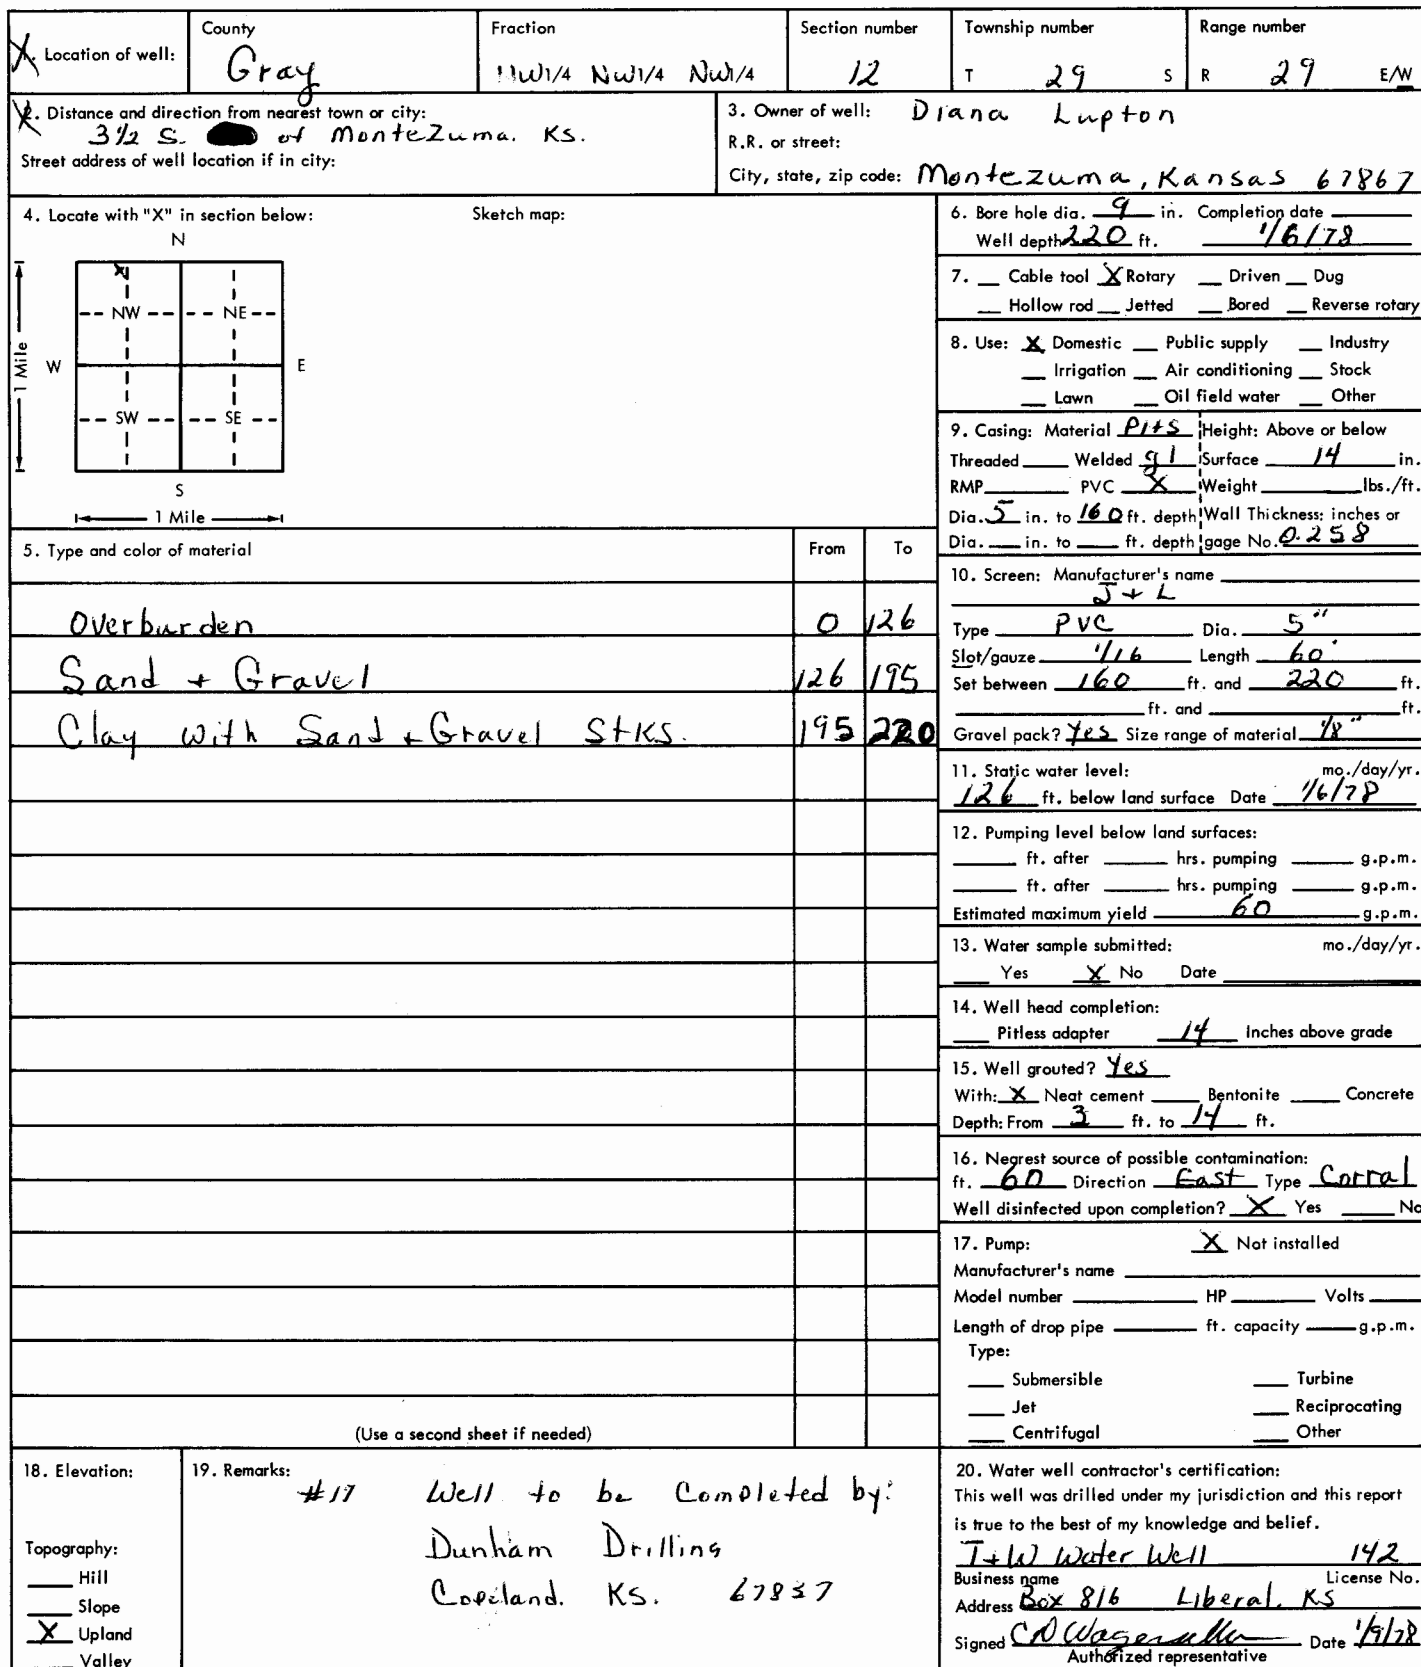 X. Location of well:
County
Gray
Fraction
NW1/4 NW1/4 NW1/4
Section number
12
Township number
T 29 S
Range number
R 29 E/W
2. Distance and direction from nearest town or city:
3 1/2 S. of Montezuma. KS.
Street address of well location if in city:
3. Owner of well: Diana Lupton
R.R. or street:
City, state, zip code: Montezuma, Kansas 67867
4. Locate with "X" in section below: Sketch map:
N
X
NW NE
W E
1 Mile
SW SE
S
1 Mile
5. Type and color of material From To
Overburden 0 126
Sand + Gravel 126 195
Clay with Sand + Gravel StKs. 195 220
(Use a second sheet if needed)
6. Bore hole dia. 9 in. Completion date
Well depth 220 ft. 1/6/78
7. __ Cable tool X Rotary __ Driven __ Dug
__ Hollow rod __ Jetted __ Bored __ Reverse rotary
8. Use: X Domestic __ Public supply __ Industry
__ Irrigation __ Air conditioning __ Stock
__ Lawn __ Oil field water __ Other
9. Casing: Material Height: Above or below
Threaded ____ Welded gl Surface 14 in.
RMP ____ PVC X Weight ____ lbs./ft.
Dia. 5 in. to 160 ft. depth Wall Thickness: inches or
Dia. __ in. to __ ft. depth gage No. 0.258
10. Screen: Manufacturer's name
J + L
Type PVC Dia. 5"
Slot/gauze 1/16 Length 60'
Set between 160 ft. and 220 ft.
____ ft. and ____ ft.
Gravel pack? Yes Size range of material 1/8"
11. Static water level: mo./day/yr.
126 ft. below land surface Date 1/6/78
12. Pumping level below land surfaces:
____ ft. after ____ hrs. pumping ____ g.p.m.
____ ft. after ____ hrs. pumping ____ g.p.m.
Estimated maximum yield 60 g.p.m.
13. Water sample submitted: mo./day/yr.
__ Yes X No Date
14. Well head completion:
__ Pitless adapter 14 Inches above grade
15. Well grouted? Yes
With: X Neat cement __ Bentonite __ Concrete
Depth: From 3 ft. to 14 ft.
16. Nearest source of possible contamination:
ft. 60 Direction East Type Corral
Well disinfected upon completion? X Yes __ No
17. Pump: X Not installed
Manufacturer's name
Model number ____ HP ____ Volts
Length of drop pipe ____ ft. capacity ____ g.p.m.
Type:
__ Submersible __ Turbine
__ Jet __ Reciprocating
__ Centrifugal __ Other
18. Elevation:
Topography:
__ Hill
__ Slope
X Upland
__ Valley
19. Remarks:
#17 Well to be Completed by:
Dunham Drilling
Copeland. KS. 67837
20. Water well contractor's certification:
This well was drilled under my jurisdiction and this report
is true to the best of my knowledge and belief.
T+W Water Well 142
Business name License No.
Address Box 816 Liberal, KS
Signed Date 1/9/78
Authorized representative